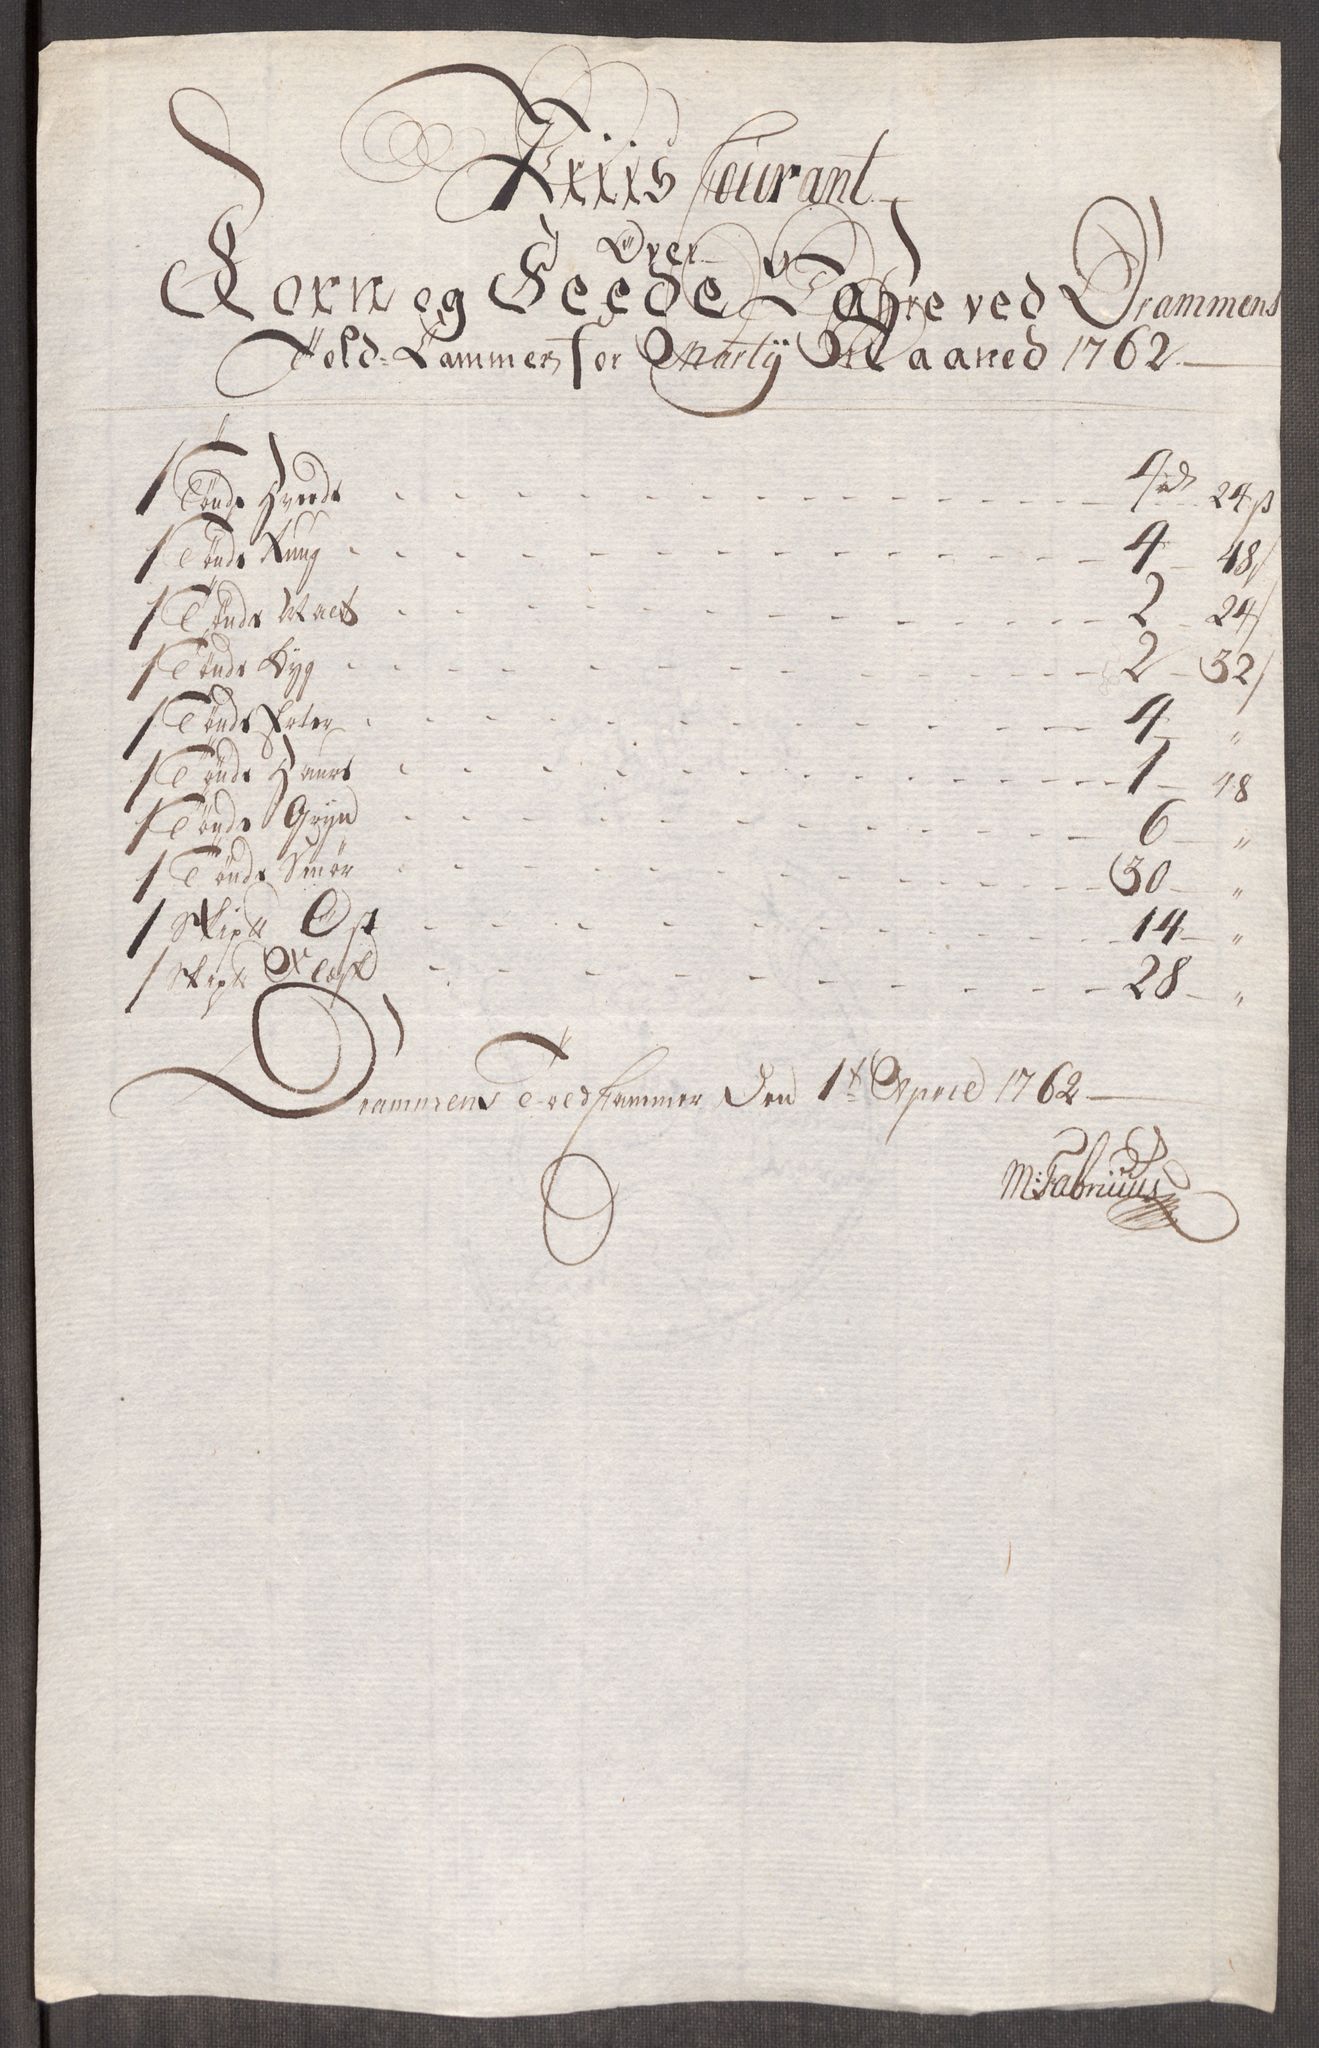 Priis Courant
Over
Korn og Feede Vahre ved Drammens
Told-Cammer for Marty Maaned 1762
1 Tönde Hvede 4 rd 24 ß
1 Tönde Rug 4 48 ß
1 Tönde Malt 2 24 ß
1 Tönde Byg 2 32 ß
1 Tönde Erter 4 "
1 Tönde Haure 1 48
1 Tönde Gryn 6 "
1 Tönde Smör 30 "
1 Skip℔ Ost 14 "
1 Skip℔ Flæsk 28 "
Drammens Toldkammer Den 1t April 1762
M: Fabritius